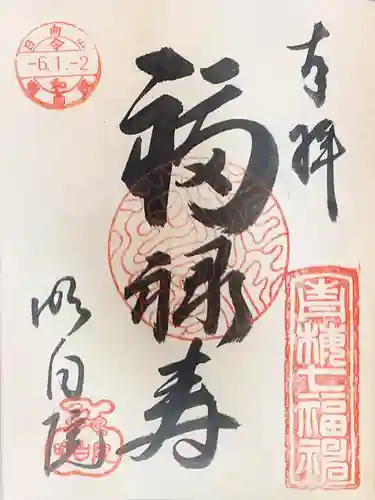 奉拝
青梅七福神
福禄寿
-6.1.-2
明白院